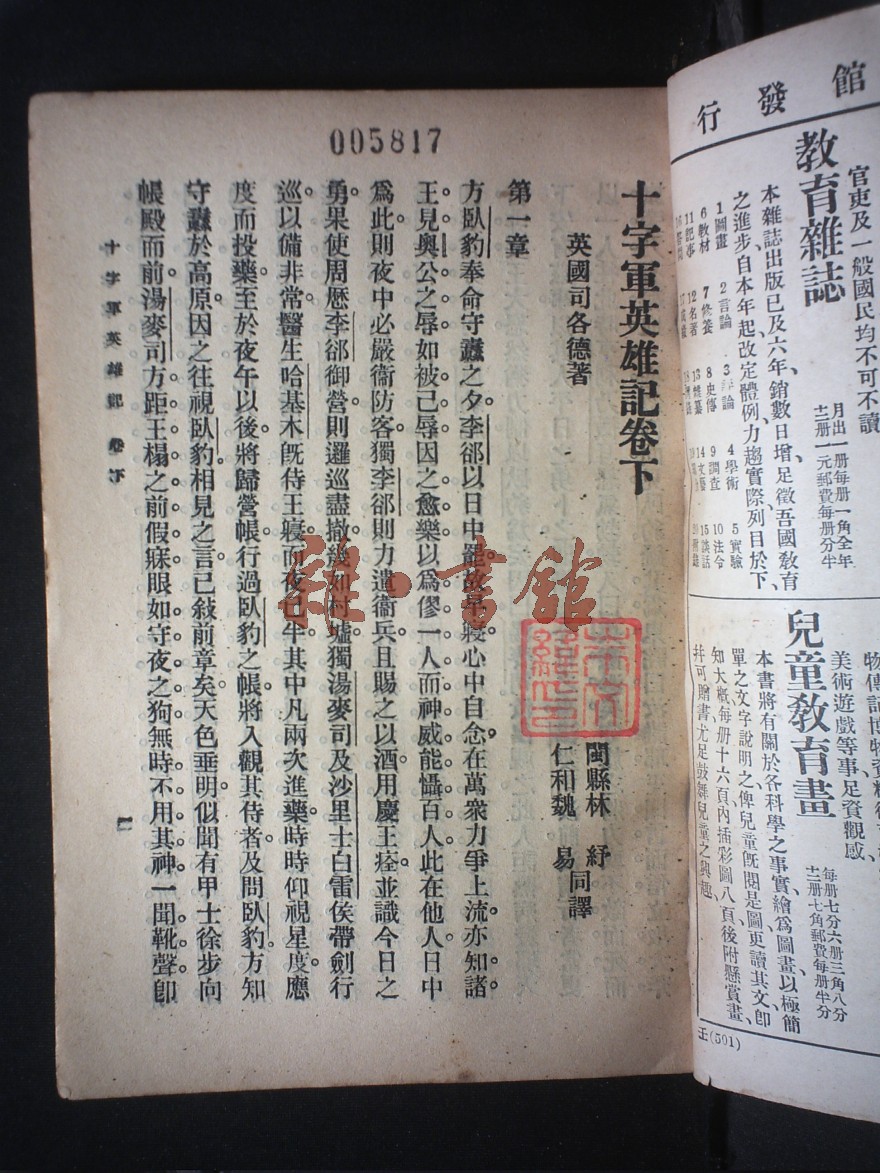 005817
十字軍英雄記卷下
英國司各德著
閩縣林 紓
仁和魏 易 同譯
第一章
方臥豹奉命守纛之夕。李郤以日中罷故早寢心中自念在萬衆力爭上流亦知諸
王見奧公之辱如被己辱因之愈樂以爲僇一人而神威能懾百人此在他人日中
爲此則夜中必嚴衞防客獨李郤則力遣衞兵且賜之以酒用慶王痊並識今日之
勇果使周歷李郤御營則邏巡盡撤幾如村墟獨湯麥司及沙里士白雷侯帶劍行
巡以備非常醫生哈基木既侍王寢而夜已半其中凡兩次進藥時時仰視星度應
度而投藥至於夜午以後將歸營帳行過臥豹之帳將入觀其侍者及問臥豹方知
守纛於高原因之往視臥豹相見之言已敍前章矣天色垂明似聞有甲士徐步向
帳殿而前湯麥司方距王榻之前假寐眼如守夜之狗無時不用其神一聞靴聲卽
十字軍英雄記 卷下
一
雜·書館
館發行
教育雜誌
官吏及一般國民均不可不讀
月出一册每册一角全年
十二册一元郵費每册分半
本雜誌出版已及六年、銷數日增、足徵吾國敎育
之進步、自本年起改定體例、力趨實際、列目於下、
1圖畫 2言論 3 4學術 5實驗
6敎材 7修養 8史傳 9調查 10法令
11記事 12名著 13 14文藝 15談話
兒童敎育畫
美術遊戲等事足資觀感
每册七分六册三角八分
十二册七角郵費每册半分
本書將有關於各科學之事實、繪爲圖畫、以極簡
單之文字說明之、俾兒童旣閱是圖、更讀其文、卽
知大槪、每册十六頁、內插彩圖八頁、後附懸賞畫、
幷可贈書、尤足鼓舞兒童之興趣
王(501)